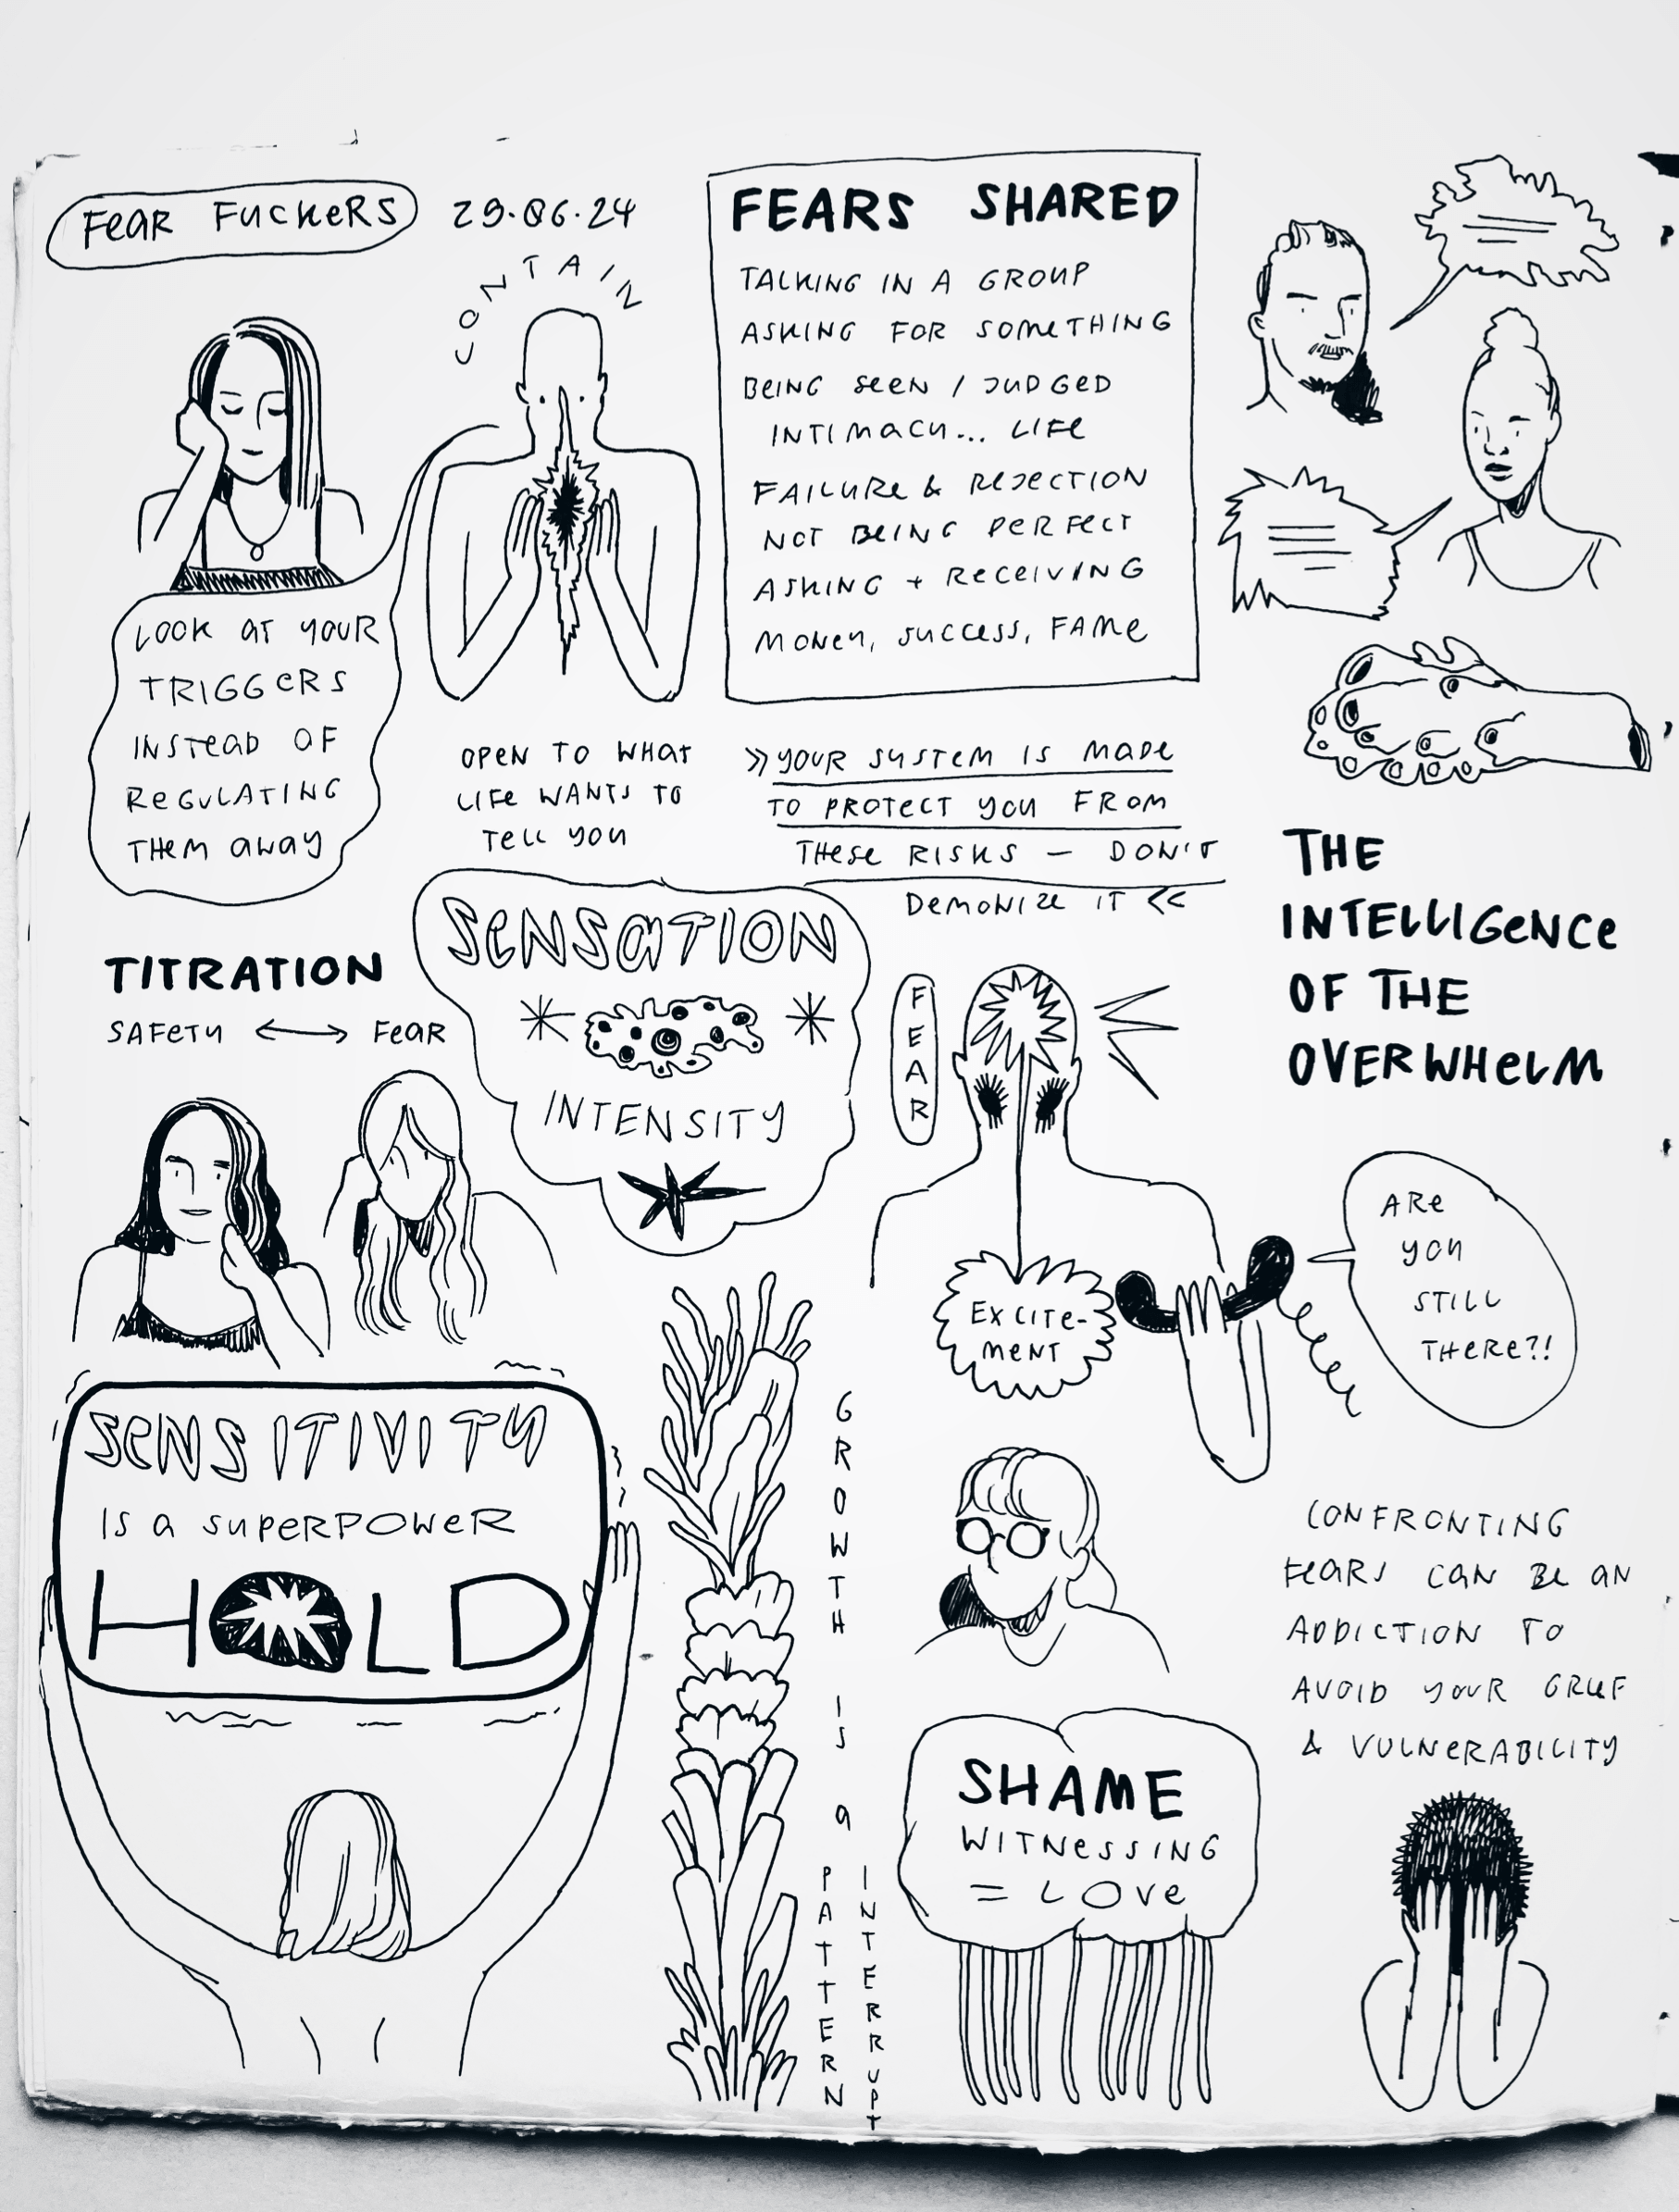 FeaR FucKeRS
29.06.24
CONTAIN
LOOK aT YOUR
TRIGGeRS
INSTeaD OF
ReGULATING
THeM away
OPeN TO WHaT
LIFe WANTS TO
TeLL YOU
FEARS SHARED
TALKING IN A GROUP
ASKING FOR SOMeTHING
BeING SeeN / JUDGeD
INTIMACY... LIFe
FAILURe & ReJeCTION
NOT BEING PeRFecT
ASKING + ReceIVING
MONeY, SUCCeSS, FAMe
»YOUR SYSTeM IS MaDe
TO PROTeCT YOU FROM
THeSe RISKS – DON'T
DeMONIZe IT «
THE
INTELLIGeNCe
OF THE
OVERWHeLM
TITRATION
SAFeTY ⟷ FeaR
SeNSaTION
INTENSITY
FEAR
EXCITe-
MeNT
ARe
YOU
STILL
THeRe?!
SeNSITIVITY
IS a SUPeRPOWeR
HOLD
GROWTH IS a
PATTERN
INTERRUPT
CONFRONTING
FeaRS CaN Be aN
ADDICTION TO
AVOID YOUR GRIeF
& VULNeRABILITY
SHAME
WITNeSSING
= LOVe